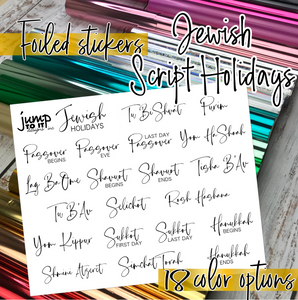 Foiled stickers
Jewish
Script Holidays
jump
TO IT!
Jewish
HOLIDAYS
Tu BiShvat
Purim
Passover
BEGINS
Passover
EVE
LAST DAY
Passover
Yom HaShoah
Lag BaOmer
Shavuot
BEGINS
Shavuot
ENDS
Tisha B'Av
Tu B'Av
Selichot
Rosh Hashana
Yom Kippur
Sukkot
FIRST DAY
Sukkot
LAST DAY
Hanukkah
BEGINS
Shmini Atzeret
Simchat Torah
Hanukkah
ENDS
18 color options